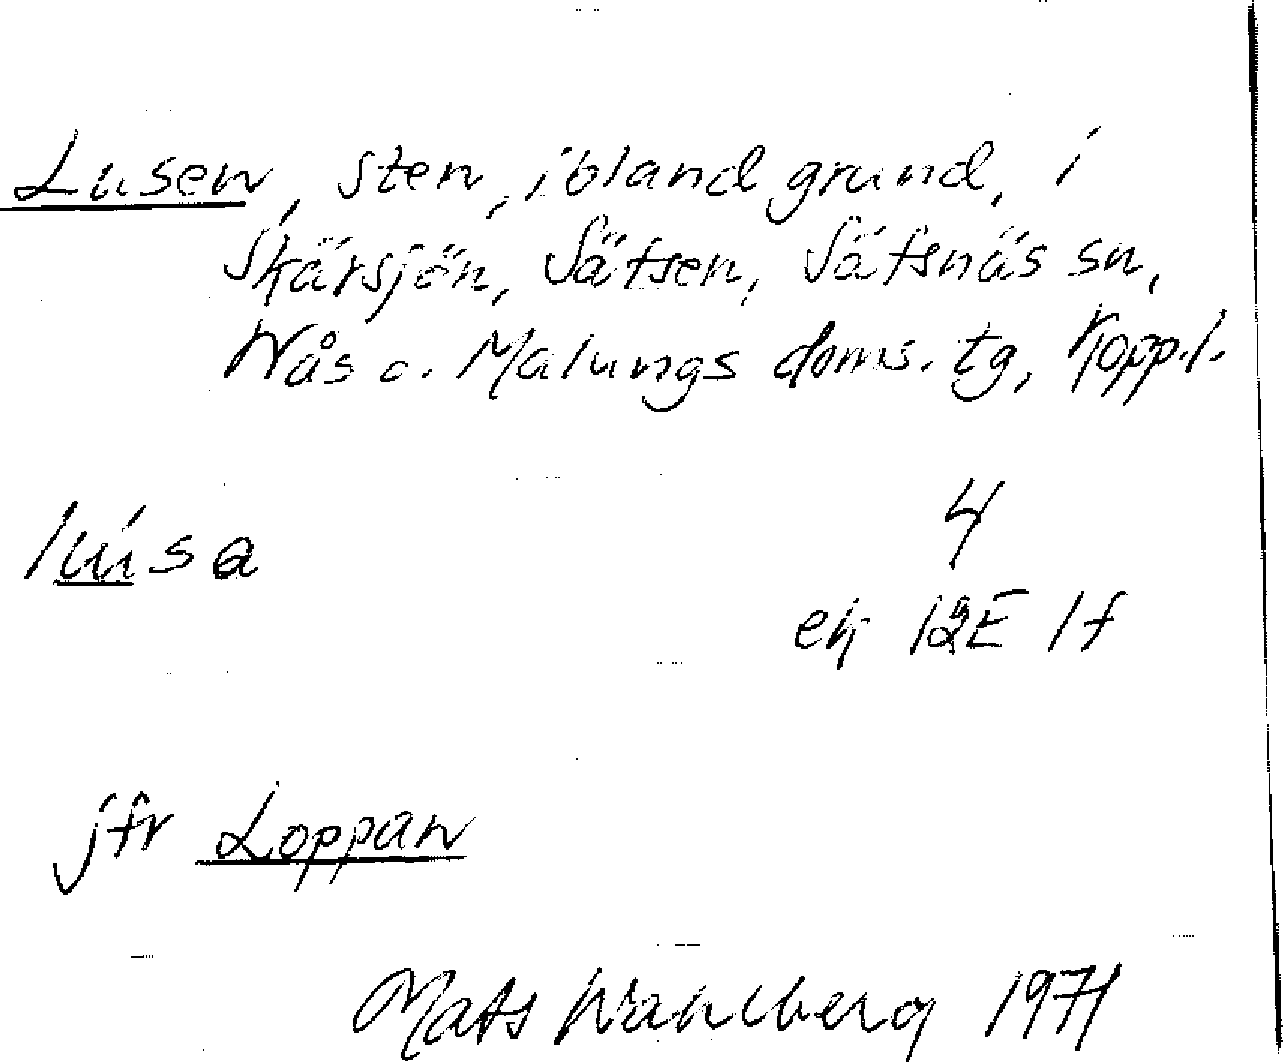 Lusen, sten, ibland grund, i
Skärsjön, Sätsen, Sätsnäs sn,
Nås o. Malungs doms. tg, Kopp.l.
lúsa
4
ek 12E 1f
jfr Loppan
Mats Wahlberg 1971